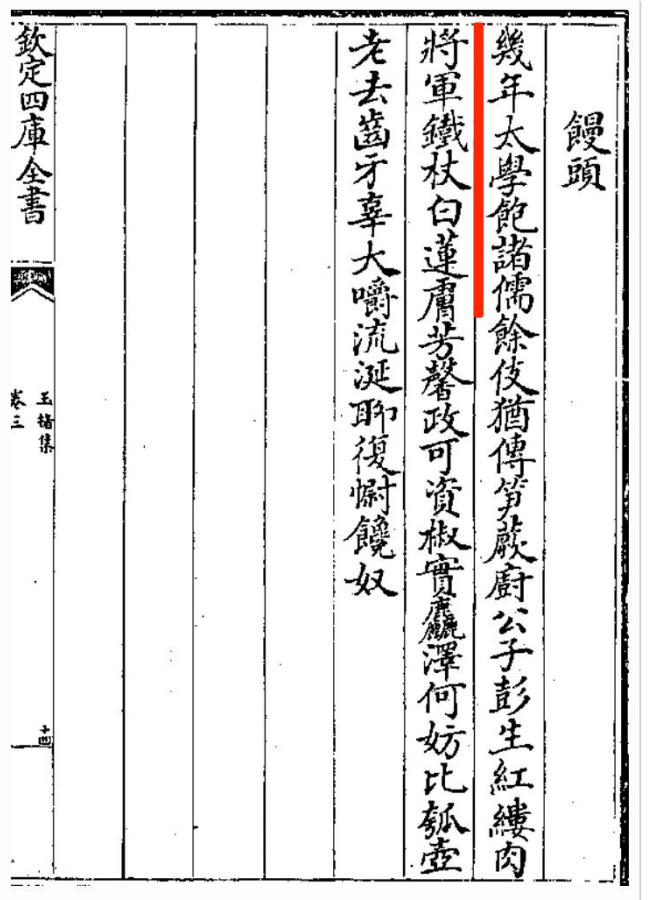 饅頭
幾年太學飽諸儒餘伎猶傳笋蕨廚公子彭生紅縷肉
將軍鐵杖白蓮膚芳馨政可資椒實麤澤何妨比瓠壺
老去齒牙辜大嚼流涎聊復慰饞奴
欽定四庫全書
玉楮集
卷三
十四